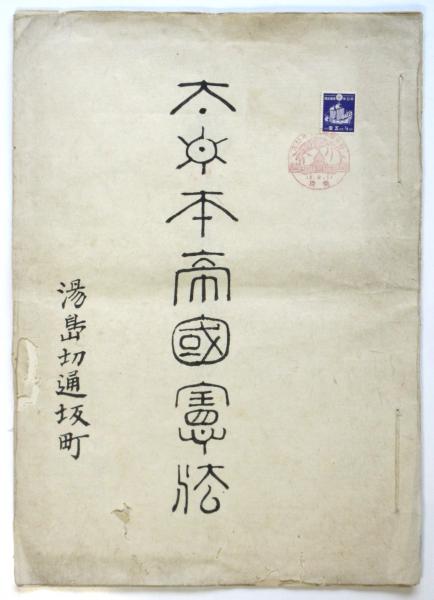 大日本帝國憲法
湯島切通坂町